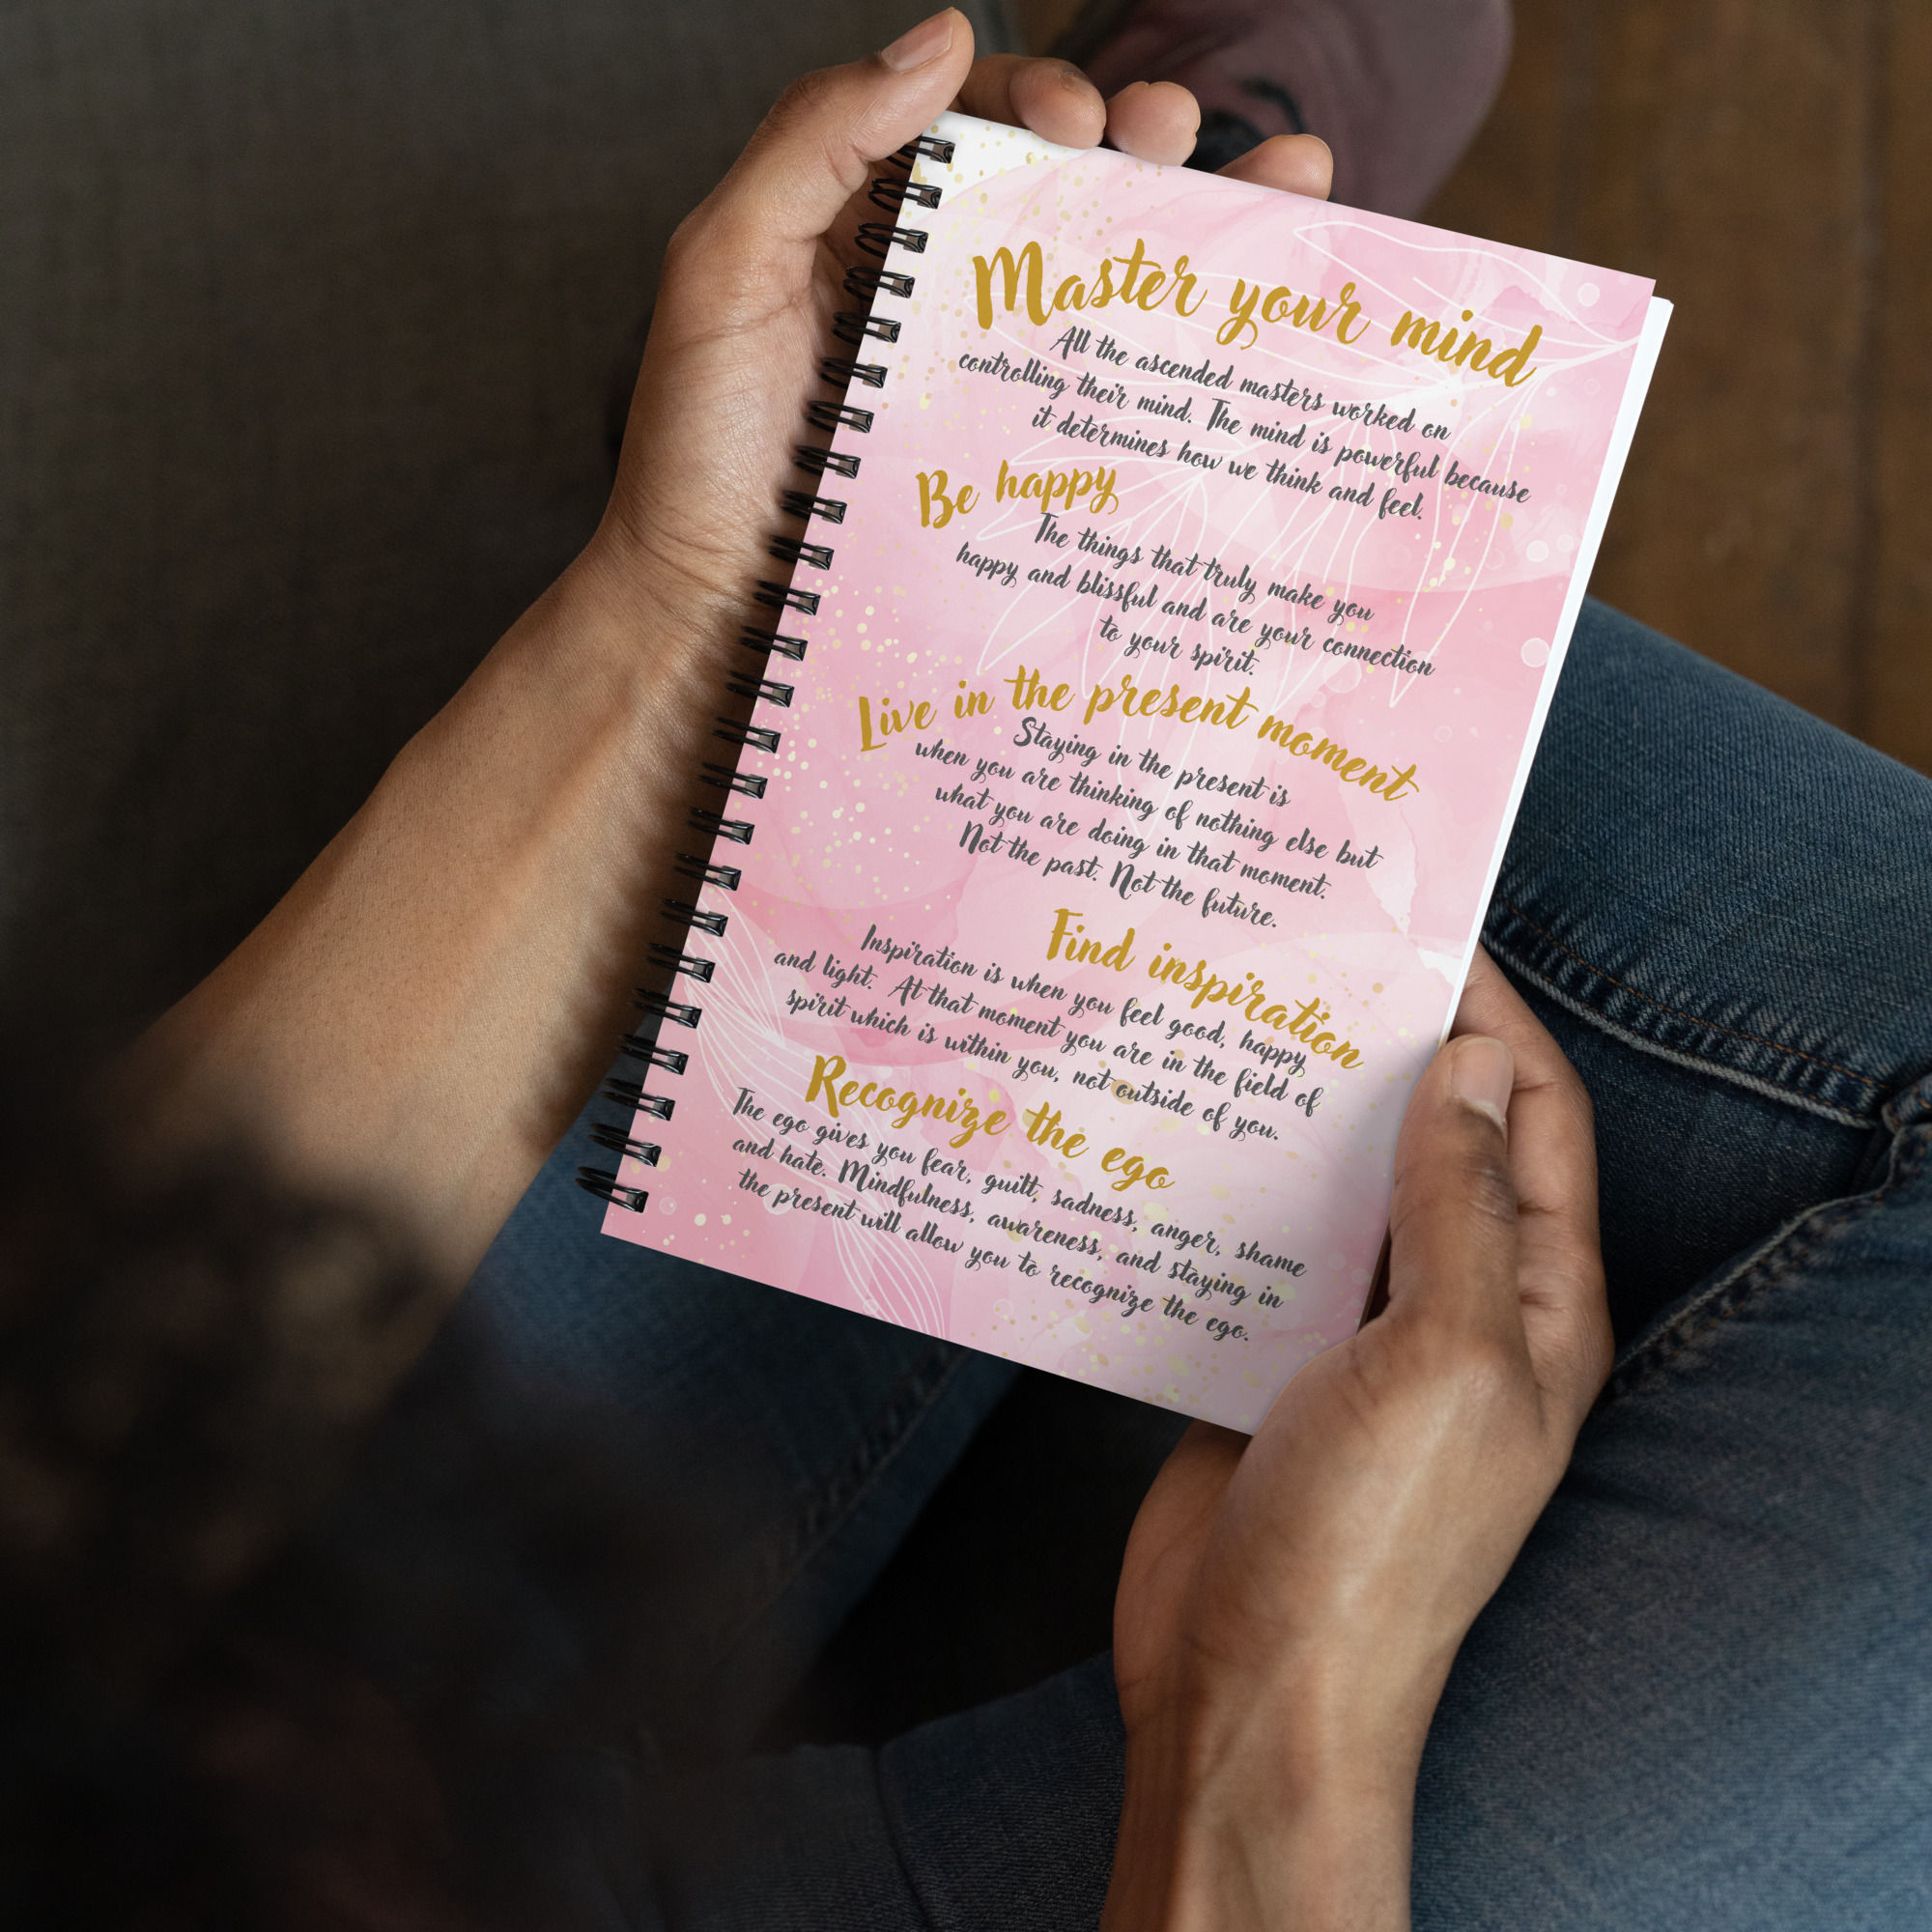 Master your mind
All the ascended masters worked on
controlling their mind. The mind is powerful because
it determines how we think and feel.
Be happy
The things that truly make you
happy and blissful and are your connection
to your spirit.
Live in the present moment
Staying in the present is
when you are thinking of nothing else but
what you are doing in that moment.
Not the past. Not the future.
Find inspiration
Inspiration is when you feel good, happy
and light. At that moment you are in the field of
spirit which is within you, not outside of you.
Recognize the ego
The ego gives you fear, guilt, sadness, anger, shame
and hate. Mindfulness, awareness, and staying in
the present will allow you to recognize the ego.